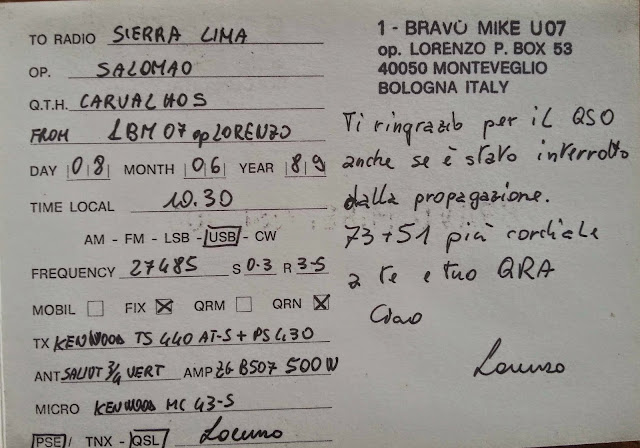 TO RADIO SIERRA LIMA
OP. SALOMAO
Q.T.H. CARVALHOS
FROM 1BM07 op LORENZO
DAY 08 MONTH 06 YEAR 89
TIME LOCAL 10.30
AM - FM - LSB - USB - CW
FREQUENCY 27485 S 0-3 R 3-5
MOBIL FIX QRM QRN
TX KENWOOD TS 440 AT-S + PS 430
ANT SALIOT 3/4 VERT AMP ZG B507 500W
MICRO KENWOOD MC 43-S
PSE / TNX - QSL Lorenzo
1 - BRAVO MIKE U07
op. LORENZO P. BOX 53
40050 MONTEVEGLIO
BOLOGNA ITALY
Ti ringrazio per il QSO
anche se è stato interrotto
dalla propagazione.
73+51 più cordiale
a te e tuo QRA
Ciao
Lorenzo